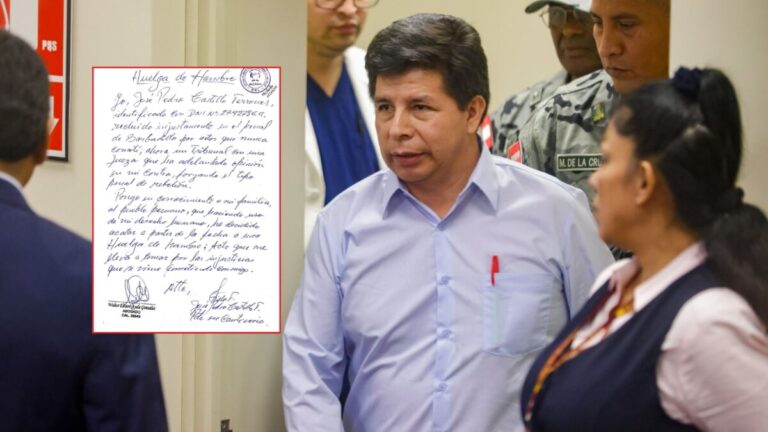 PQS
M. DE LA CRU
Huelga de Hambre
Yo, José Pedro Castillo Terrones,
identificado con DNI Nº
recluido injustamente en el penal
de Barbadillo por actos que nunca
cometí; ahora un Tribunal con una
Jueza que ha adelantado opinión
en mi contra, forzando el tipo
penal de rebelión.
Pongo en conocimiento a mi familia,
al pueblo peruano, que haciendo uso
de mi derecho humano, he decidido
acatar a partir de la fecha a una
Huelga de Hambre; Acto que me
lleva a tomar por las injusticias
que se viene cometiendo conmigo.
Atte,
José Pedro Castillo T.
ABOGADO